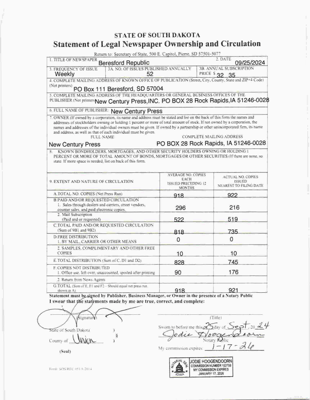 STATE OF SOUTH DAKOTA
Statement of Legal Newspaper Ownership and Circulation
Return to: Secretary of State, 500 E. Capitol, Pierre, SD 57501-5077
1. TITLE OF NEWSPAPER Beresford Republic
2. DATE 09/25/2024
3. FREQUENCY OF ISSUE Weekly
3A. NO. OF ISSUES PUBLISHED ANNUALLY 52
3B. ANNUAL SUBSCRIPTION PRICE $ 32 35
4. COMPLETE MAILING ADDRESS OF KNOWN OFFICE OF PUBLICATION (Street, City, County, State and ZIP+4 Code) (Not printers)
PO Box 111 Beresford, SD 57004
5. COMPLETE MAILING ADDRESS OF THE HEADQUARTERS OF GENERAL BUSINESS OFFICES OF THE
PUBLISHER (Not printer) New Century Press,INC. PO BOX 28 Rock Rapids,IA 51246-0028
6. FULL NAME OF PUBLISHER: New Century Press
7. OWNER (If owned by a corporation, its name and address must be stated and list on the back of this form the names and
addresses of stockholders owning or holding 1 percent or more of total amount of stock. If not owned by a corporation, the
names and addresses of the individual owners must be given. If owned by a partnership or other unincorporated firm, its name
and address, as well as that of each individual must be given.
FULL NAME
COMPLETE MAILING ADDRESS
New Century Press
PO BOX 28 Rock Rapids, IA 51246-0028
8. KNOWN BONDHOLDERS, MORTGAGES, AND OTHER SECURITY HOLDERS OWNING OR HOLDING 1
PERCENT OR MORE OF TOTAL AMOUNT OF BONDS, MORTGAGES OR OTHER SECURITIES
9. EXTENT AND NATURE OF CIRCULATION
AVERAGE NO. COPIES EACH ISSUED PRECEDING 12 MONTHS
ACTUAL NO. COPIES ISSUED NEAREST TO FILING DATE
A. TOTAL NO. COPIES (Net Press Run) 918 922
B. PAID AND/OR REQUESTED CIRCULATION
1. Sales through dealers and carriers, street vendors, counter sales, and paid electronic copies. 296 216
2. Mail Subscription (Paid and or requested) 522 519
C. TOTAL PAID AND/OR REQUESTED CIRCULATION (Sum of 9B1 and 9B2) 818 735
D. FREE DISTRIBUTION
1. BY MAIL, CARRIER OR OTHER MEANS 0 0
2. SAMPLES, COMPLIMENTARY AND OTHER FREE COPIES 10 10
E. TOTAL DISTRIBUTION (Sum of C, D1 and D2) 828 745
F. COPIES NOT DISTRIBUTED
1. Office use, left over, unaccounted, spoiled after printing 90 176
2. Return from News Agents
G. TOTAL 918 921
Statement must be signed by Publisher, Business Manager, or Owner in the presence of a Notary Public
I swear that the statements made by me are true, correct, and complete:
(Signature)
(Title)
State of South Dakota )
County of Union )
(Seal)
Sworn to before me this 25 day of Sept. 20 24
Jodie Hoogendoorn
Notary Public
My commission expires: 1-17-26
JODIE HOOGENDOORN
MY COMMISSION EXPIRES